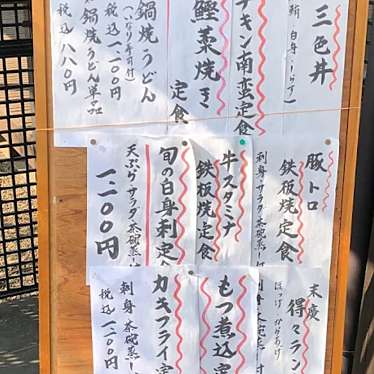 三色丼
チキン南蛮定食
鰹藁焼き
定食
鍋焼うどん
税込一二〇〇円
鍋焼うどん単品
税込八八〇円
豚トロ
鉄板焼定食
刺身・サラダ・茶碗蒸し
牛スタミナ
鉄板焼定食
旬の白身刺定
天ぷら・サラダ・茶碗蒸し
一二〇〇円
末廣
得々ラン
もつ煮込定
刺身・茶碗蒸し
カキフライ定
刺身・茶碗蒸し
税込一二〇〇円